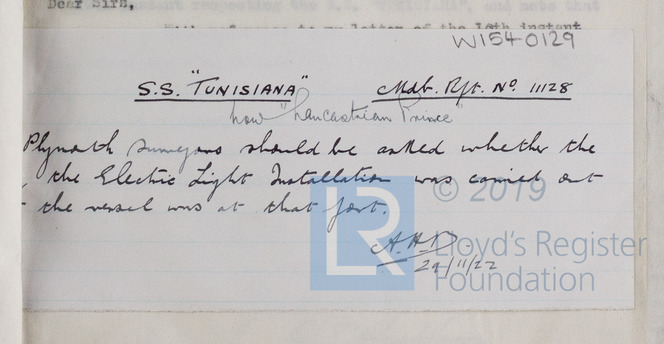 Dear Sirs,
instant respecting the S.S. "TUNISIANA", and note that
to my letter of the 18th instant
W154-0129
S.S. "TUNISIANA" Mdb. Rpt. No. 11128
now "Lancastrian Prince"
Plymouth Surveyors should be asked whether the
the Electric Light Installation was carried out
the vessel was at that port.
A.H.D.
29/11/22
© 2019
LR
Lloyd's Register
Foundation